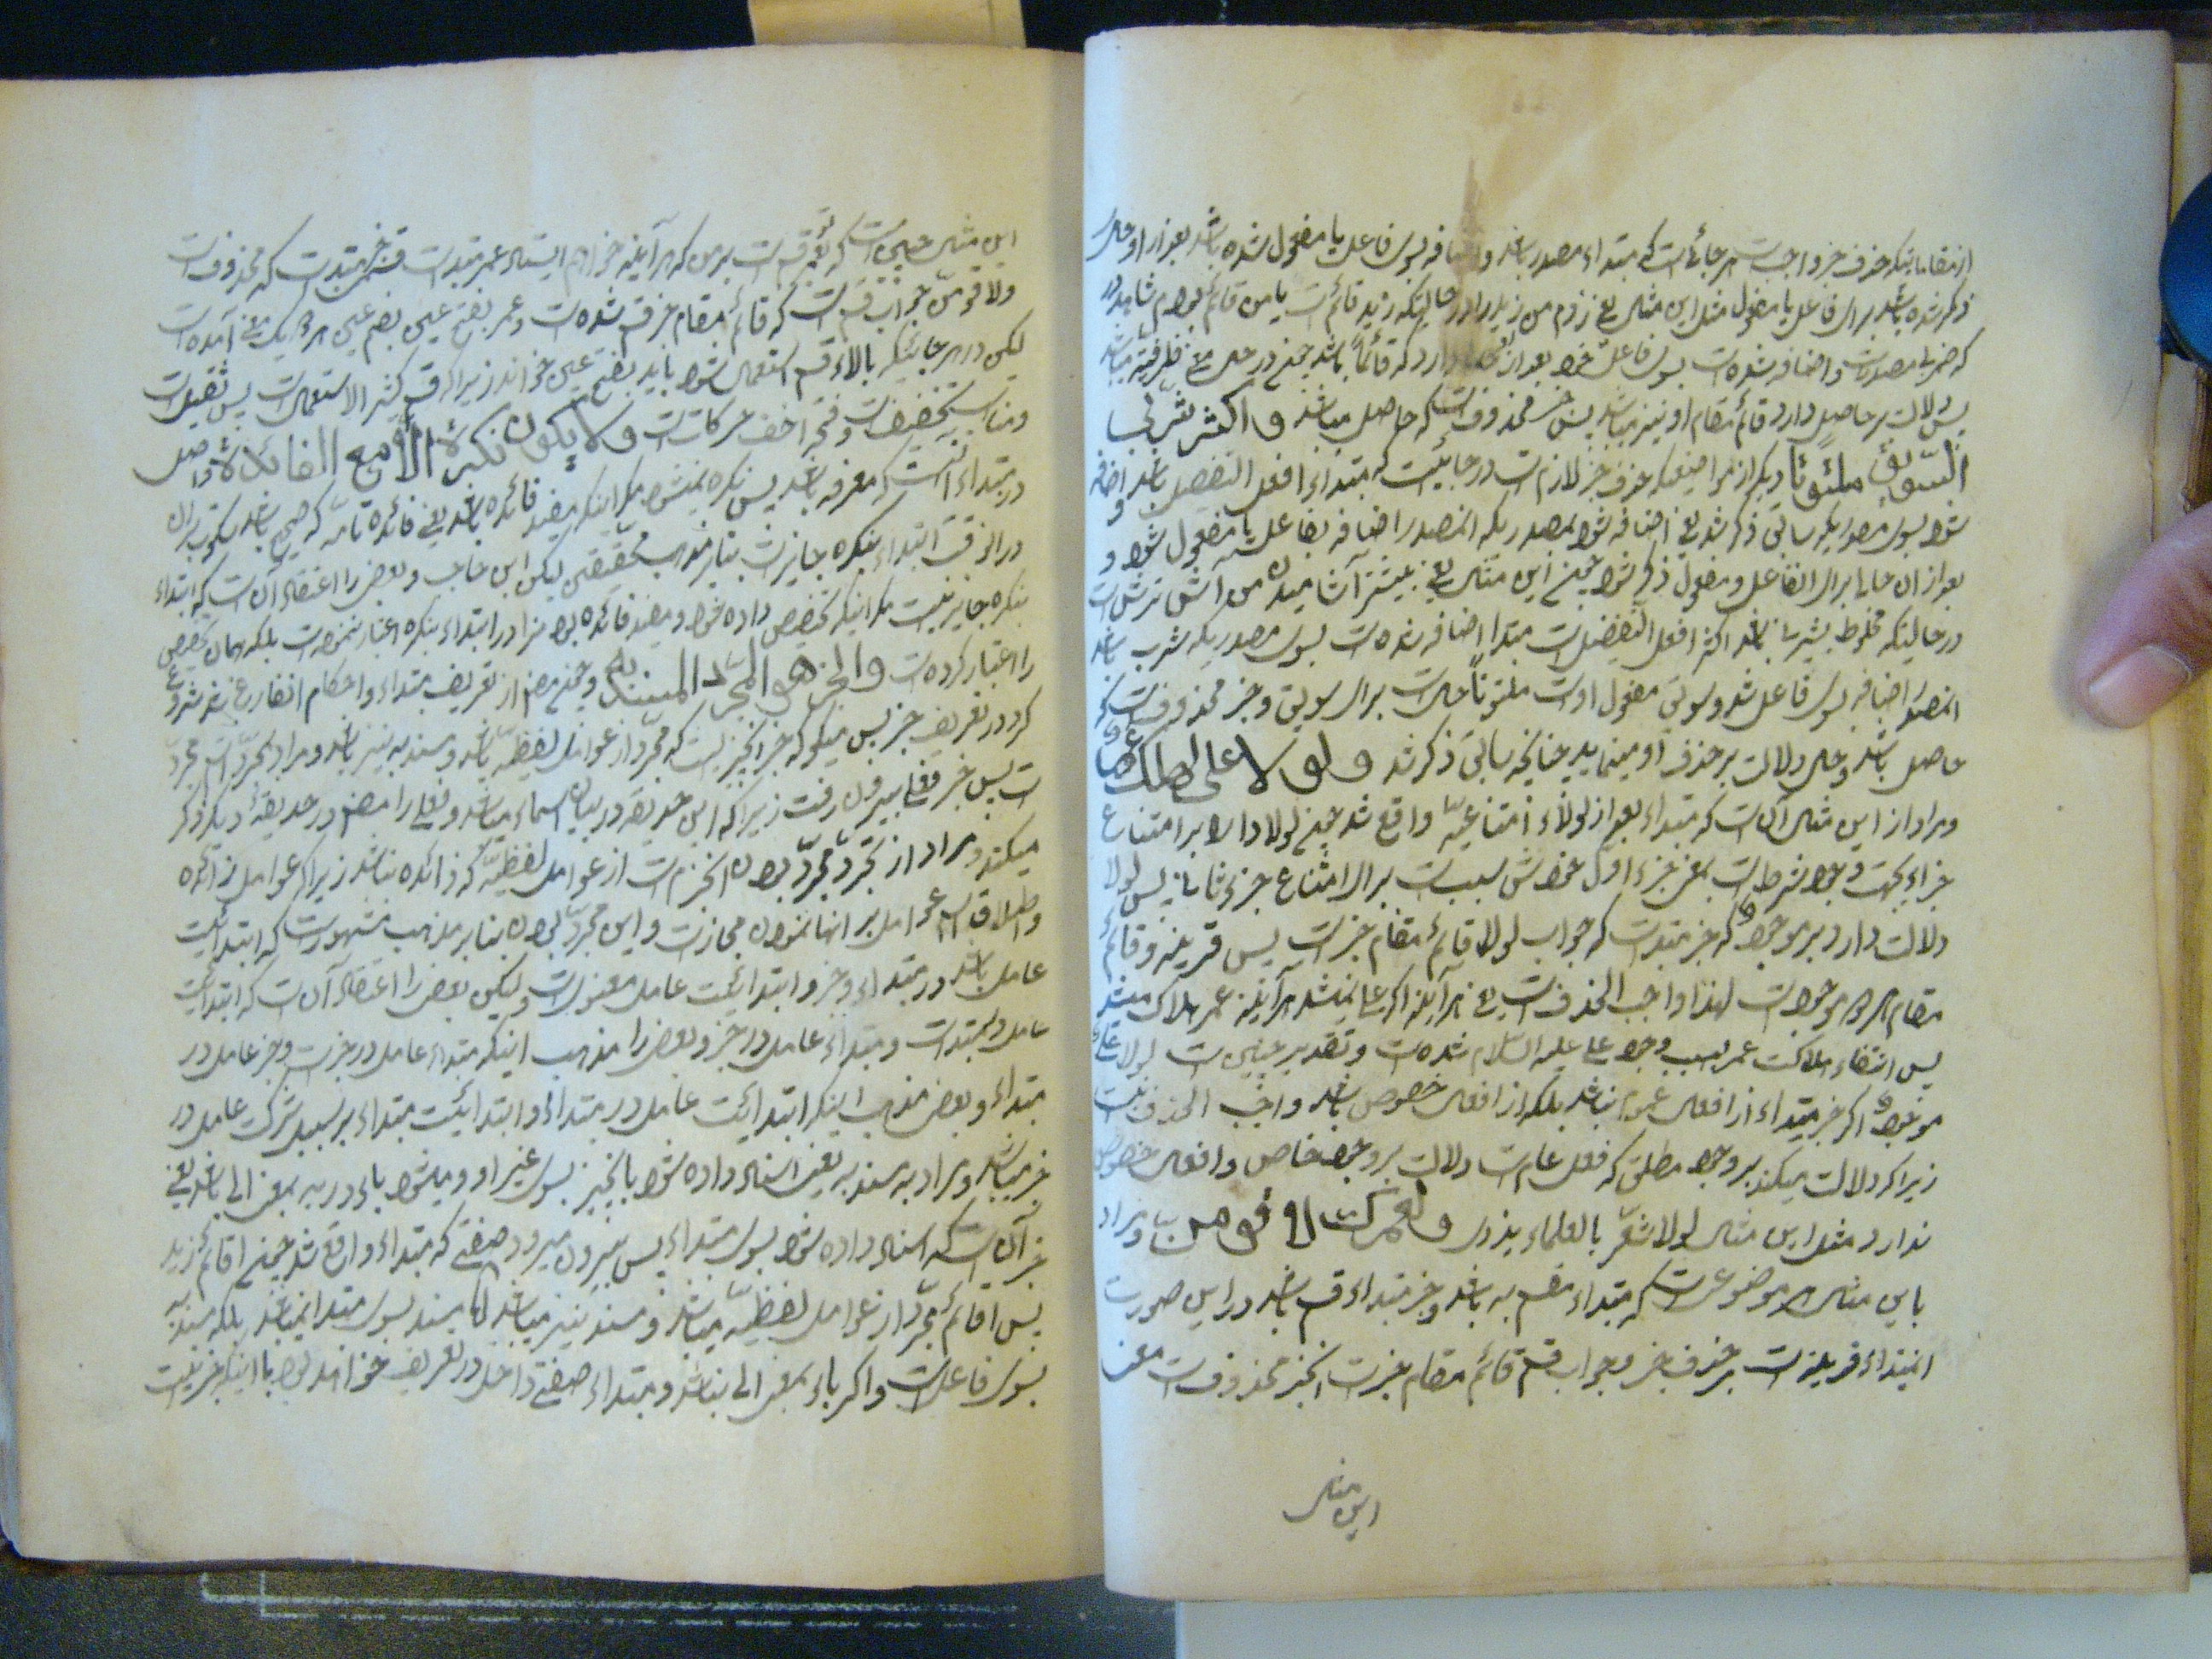 از مقاماتیکه حذف خبر واجبست هر جائی است که مبتداء مصدر باشد واضافه بسوی فاعل یا مفعول شده باشد بعد از او حالی
ذکر شده باشد برای فاعل یا مفعول مثل این مثال یعنی زدم من زید را در حالتیکه زید قائم است یا من قائم بودم
که ضربی مصدر است واضافه شده است بسوی فاعل خود بعد از دارد که قائماً باشد
پس دلالت بر حاصل دارد قائم مقام او نیز میباشد پس خبر محذوفست که حاصل میباشد واکثر شربی
السّویق ملتوتا دیگر از مواضعیکه حذف خبر لازم است در جائیست که مبتداء افعل التفضیل باشد واضافه
شود بسوی مصدریکه سابق ذکر شد یعنی اضافه شود بمصدریکه انمصدر اضافه بفاعلش یا مفعول شود و
بعد از ان حالی برای انفاعل ومفعول ذکر شود همچنین این مثال یعنی بیشتر آشامیدن من
در حالتیکه مخلوط باشد اکثر افعل التفضیل است مبتدا اضافه شده است بسوی مصدریکه شرب باشد
انمصدر اضافه بسوی فاعل شد وسویق مفعول اوست ملتوتاً حال است برای سویق وخبر محذوفست که
حاصل باشد وحال دلالت بر حذف او مینماید چنانچه سابق ذکر شد ولولا علی لهلک عمر
ومراد از این مثال آن است که مبتداء بعد از لولاء امتناعیّه واقع شد همچنین لولا دال بر امتناع
جزاء بجهت وجود شرطست بمعنی جزء اول خودش سبب است برای امتناع جزء ثانی پس لولا
دلالت دارد بر موجود که خبر مبتدست که جواب لولا قائم مقام خبر است پس قرینه وقائم
مقام هر دو موجود است لهذا واجب الحذف است یعنی هرآینه اگر علی نمیشد هرآینه عمر هلاک میشد
پس انتفاء هلاکت عمر بسبب وجود علی علیه السّلام شده است وتقدیر چنین است لولا علیّ
موجود اگر خبر مبتداء از افعال عموم نباشد بلکه از افعال خصوص باشد واجب الحذف نیست
زیرا که دلالت میکند بر وجود مطلق که فعل عام است دلالت بر وجود خاص وافعال خصوص
ندارد مثل این مثال لولا الشعر بالعلماء یزری ولعمرک لاقومنّ ومراد
باین مثال هر موضوعیست که مبتداء مقسم به باشد وخبر مبتداء قسم باشد در این صورت
انمبتداء قرینه است بر حذف خبر وجواب قسم قائم مقام خبر است انخبر محذوف است معنی
این مثال
این مثال چنین است که بتو قسم است بر من که هرآینه خواهم ایستاد عمر مبتدست قسمی خبر مبتدست که محذوف است
ولاقومنّ جواب قسم است که قائم مقام خبر قسم شده است وعمر بفتح عین بضم عین هر دو بیک معنی آمده است
لیکن در هر جائیکه بالاء قسم استعمال شود باید بفتح عین خواند زیرا که قسم کثیر الاستعمال است پس ثقیل است
ومناسب تخفیف است وفتحه اخف حرکات است ولا یکون نکرة الّا مع الفائدة واصل
در مبتداء انست که معرفه باشد پس نکره نمیشود مگر اینکه مفید فائده باشد یعنی فائده تامّه که صحیح باشد سکوت بر ان
در انوقت ابتداء بنکره جایز است بنابر مذهب محققین لیکن ابن حاجب وبعضی را اعتقاد آن است که ابتداء
بنکره جایز نیست مگر اینکه تخصیص داده شود ومفید فائده بودن را در ابتداء بنکره اعتبار ننموده است بلکه همان تخصیص
را اعتبار کرده است والخبر هو المجرّد المسند به وچون مصنف از تعریف مبتداء واحکام انفارغ شد شروع
کرد در تعریف خبر پس میگوید خبر انچیزیست که مجرّد از عوامل لفظیّه باشد ومسند به نیز باشد ومراد بمجرّد اسم مجرّد
است پس خبر فعلی بیرون رفت زیرا که این حدیقه در بیان اسماء میباشد وفعلی را مصنف در حدیقهٔ دیگر ذکر
میکند ومراد از تجرّد مجرّد بودن انخبر است از عوامل لفظیّه که زائده نباشد زیرا که عوامل زائده
واطلاق اسم عوامل بر انها نمودن مجاز است واین مجرّد بودن بنابر مذهب مشهور است که ابتدائیت
عامل باشد در مبتداء وخبر وابتدائیت عامل معنویست ولیکن بعضی را اعتقاد آن است که ابتدائیت
عامل در مبتدست ومبتداء عامل در خبر وبعضی را مذهب اینکه مبتداء عامل در خبر است وخبر عامل در
مبتداء وبعضی مذهب اینکه ابتدائیت عامل در مبتداء وابتدائیت مبتداء بر سبیل شرکت عامل در
خبر میباشد ومراد به مسند به یعنی اسناد داده شود بانخبر بسوی غیر او ومیشود باء در به بمعنی الی باشد یعنی
خبر آن است که اسناد داده شود بسوی مبتداء پس بیرون میرود صفتی که مبتداء واقع شد همچنین اقائم زید
پس اقائم مجرّد از عوامل لفظیّه میباشد ومسند نیز میباشد امّا مسند بسوی مبتدا نمیباشد بلکه مسند به
بسوی فاعل است واگر باء بمعنی الی نباشد ومبتداء صفتی داخل در تعریف خواهد بود با اینکه خبر نیست